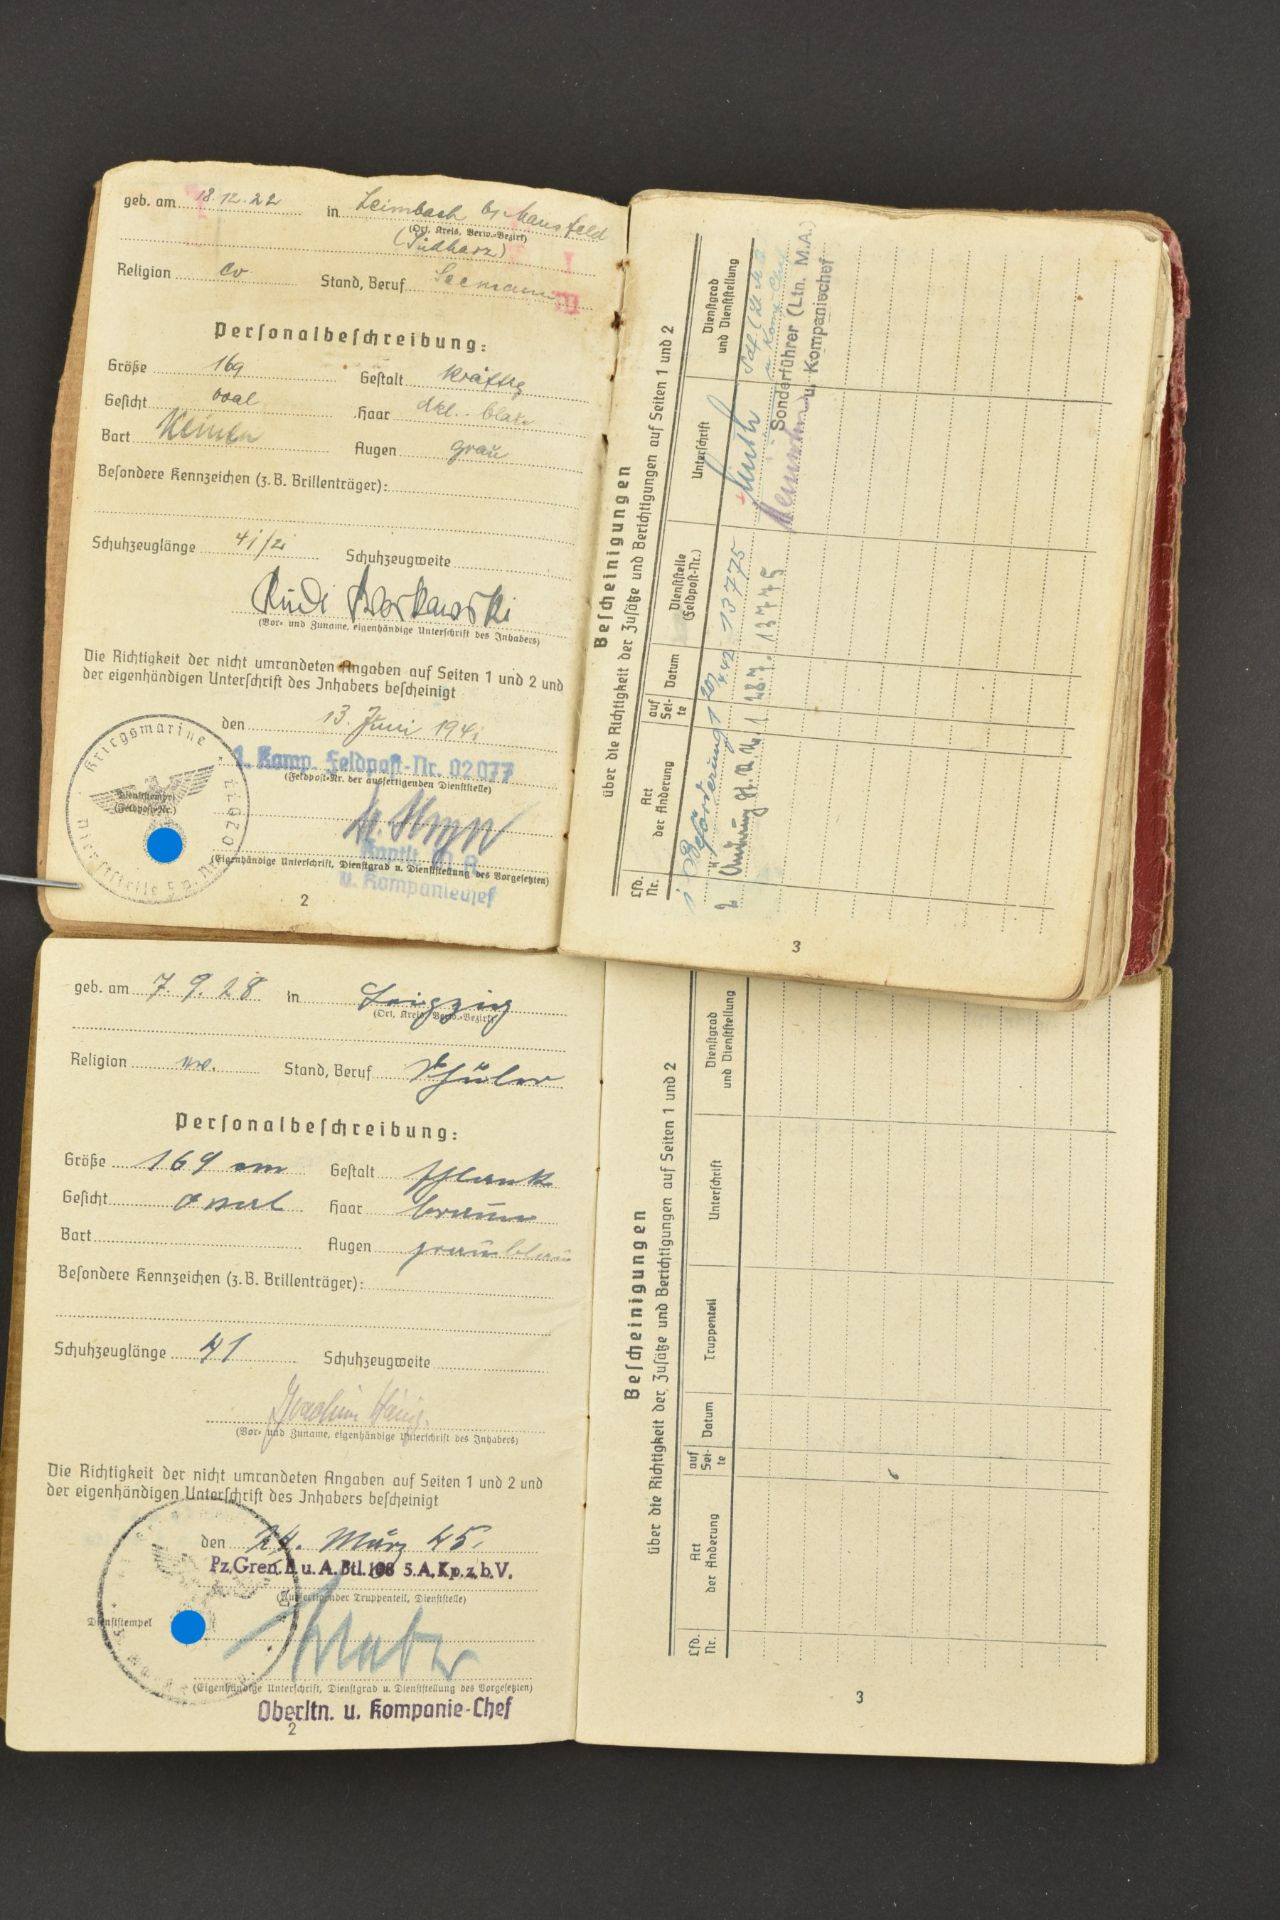 geb. am 18.12.22 in Leimbach b/ Mansfeld
(Ort, Kreis, Verw.-Bezirk)
(Südharz)
Religion ev Stand, Beruf Seemann
Personalbeschreibung:
Größe 169 Gestalt kräftig
Gesicht oval Haar dkl.-blau
Bart Keinen Augen grau
Besondere Kennzeichen (z. B. Brillenträger):
Schuhzeuglänge Schuhzeugweite
Rudi
(Vor- und Zuname, eigenhändige Unterschrift des Inhabers)
Die Richtigkeit der nicht umrandeten Angaben auf Seiten 1 und 2 und
der eigenhändigen Unterschrift des Inhabers bescheinigt
den 13. Juni 194
1. Komp. Feldpost-Nr. 02077
(Feldpost-Nr. der ausfertigenden Dienststelle)
Kriegsmarine
Dienststempel
(Feldpost-Nr.)
Dienststelle F. P. Nr. 02077
Kaptlt. M A
(Eigenhändige Unterschrift, Dienstgrad u. Dienststellung des Vorgesetzten)
u. Kompaniechef
2
Bescheinigungen
über die Richtigkeit der Zusätze und Berichtigungen auf Seiten 1 und 2
Lfd. Nr. Art der Änderung auf Seite Datum Dienststelle (Feldpost-Nr.) Unterschrift Dienstgrad und Dienststellung
1 Beförderung 1 13775
2 Änderung 1 28.7. 13775
Sonderführer (Ltn. M.A.)
u. Kompaniechef
3
geb. am 7. 9. 28 in Leipzig
(Ort, Kreis, Verw.-Bezirk)
Religion Stand, Beruf Schüler
Personalbeschreibung:
Größe 169 cm Gestalt schlank
Gesicht oval Haar braun
Bart Augen graublau
Besondere Kennzeichen (z. B. Brillenträger):
Schuhzeuglänge 41 Schuhzeugweite
Joachim
(Vor- und Zuname, eigenhändige Unterschrift des Inhabers)
Die Richtigkeit der nicht umrandeten Angaben auf Seiten 1 und 2 und
der eigenhändigen Unterschrift des Inhabers bescheinigt
den 24. März 45.
Pz.Gren.E.u.A.Btl.108 5.A.Kp.z.b.V.
(Ausfertigender Truppenteil, Dienststelle)
Dienststempel
(Eigenhändige Unterschrift, Dienstgrad u. Dienststellung des Vorgesetzten)
Oberltn. u. Kompanie-Chef
2
Bescheinigungen
über die Richtigkeit der Zusätze und Berichtigungen auf Seiten 1 und 2
Lfd. Nr. Art der Änderung auf Seite Datum Truppenteil Unterschrift Dienstgrad und Dienststellung
3